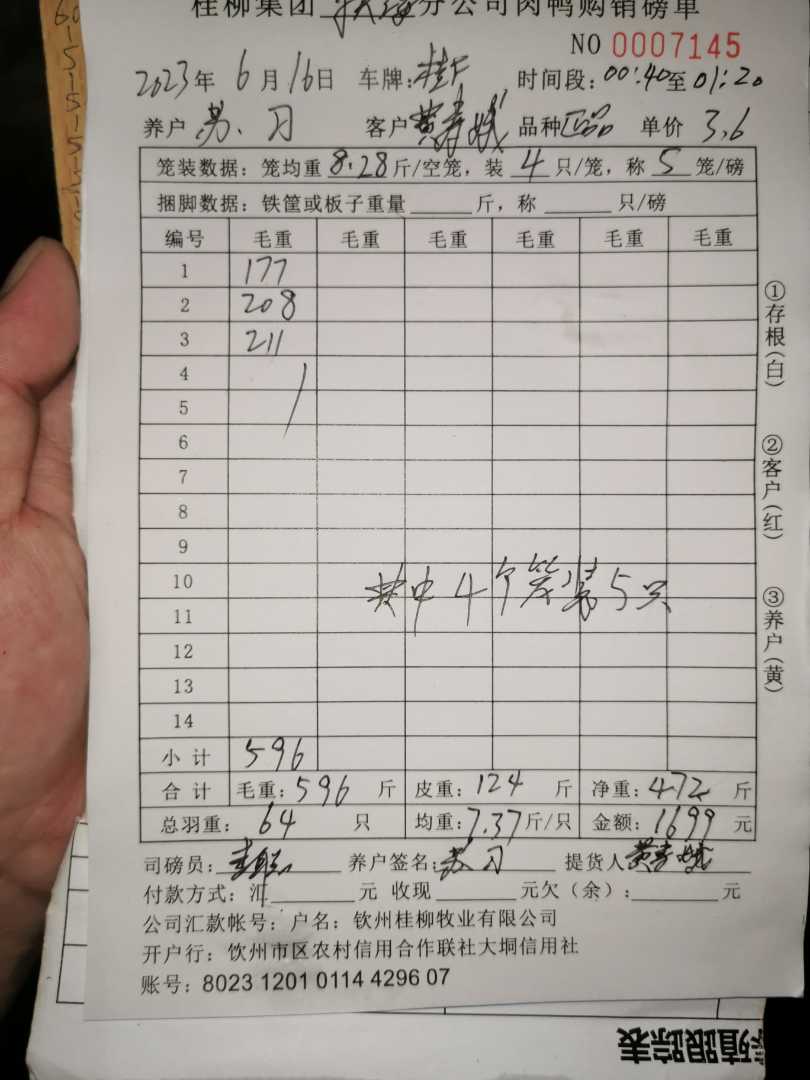 桂柳集团 分公司肉鸭购销磅单
NO 0007145
2023年 6月16日 车牌: 时间段:00:40至01:20
养户 苏 习 客户 黄寿娥 品种 正品 单价 3.6
笼装数据: 笼均重 8.28 斤/空笼, 装 4 只/笼, 称 5 笼/磅
捆脚数据: 铁筐或板子重量______斤, 称______只/磅
编号 毛重 毛重 毛重 毛重 毛重 毛重
1 177
2 208
3 211
4
5
6
7
8
9
10
其中4个笼装5只
11
12
13
14
小 计 596
合 计 毛重: 596 斤 皮重: 124 斤 净重: 472 斤
总羽重: 64 只 均重: 7.37斤/只 金额: 1699 元
司磅员: 养户签名: 苏 习 提货人 黄寿娥
付款方式: 汇______元 收现______元欠(余):______元
公司汇款帐号: 户名: 钦州桂柳牧业有限公司
开户行: 饮州市区农村信用合作联社大垌信用社
账号: 8023 1201 0114 4296 07
①存根(白)
②客户(红)
③养户(黄)
殖跟踪表